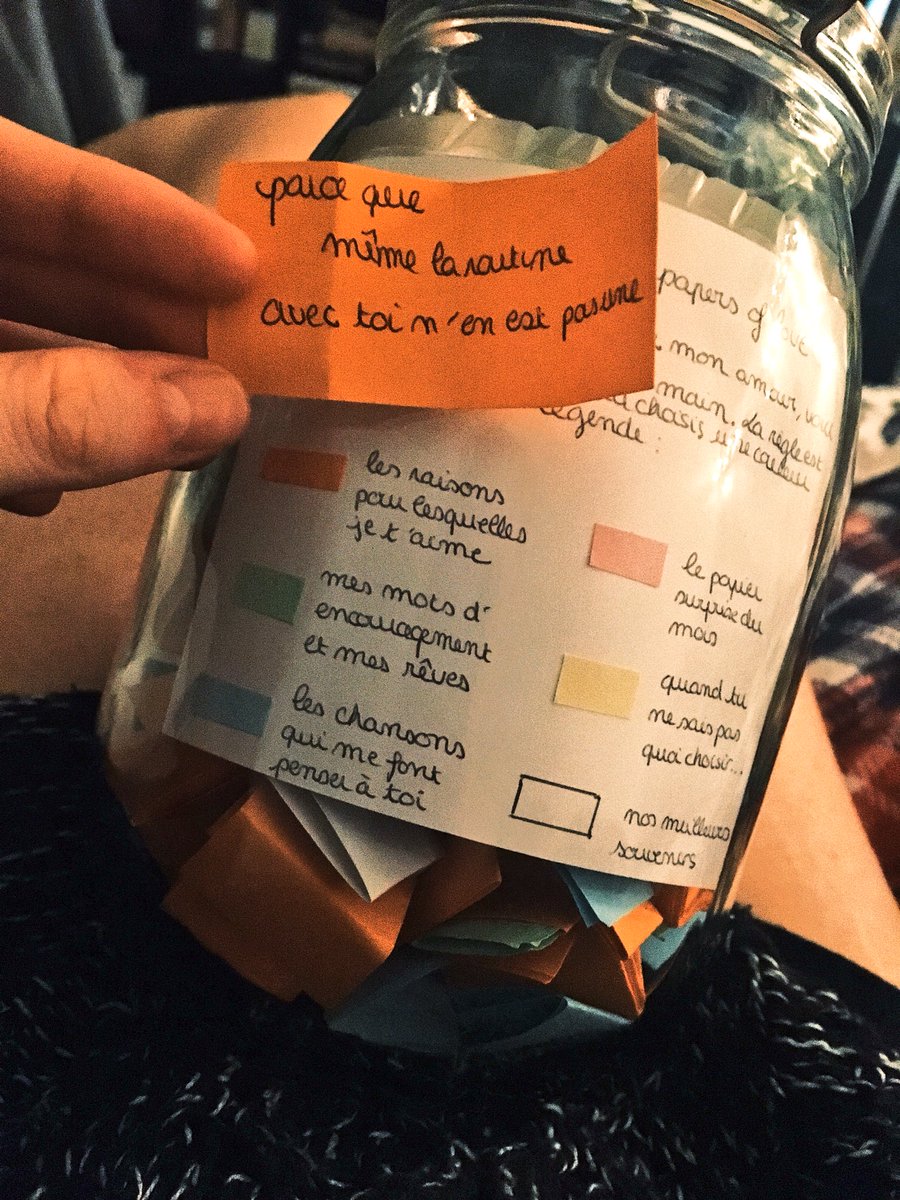 parce que
même la routine
avec toi n'en est pas une
papers of love
mon amour,
main. La règle est
choisis une couleur
légende :
les raisons
pour lesquelles
je t'aime
mes mots d'
encouragement
et mes rêves
les chansons
qui me font
penser à toi
le papier
surprise du
mois
quand tu
ne sais pas
quoi choisir...
nos meilleurs
souvenirs